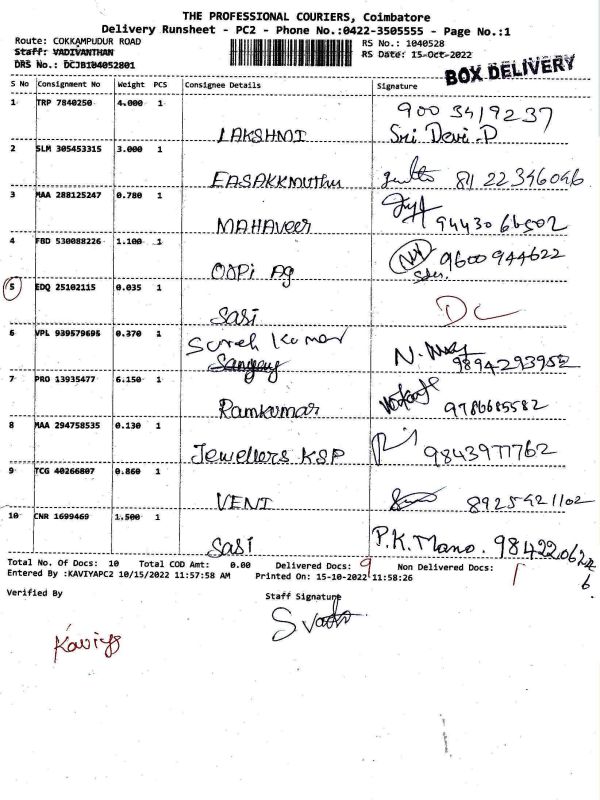 THE PROFESSIONAL COURIERS, Coimbatore
Delivery Runsheet - PC2 - Phone No.:0422-3505555 - Page No.:1
Route: COKKAMPUDUR ROAD
RS No.: 1040528
Staff: VADIVANTHAN
RS Date: 15-Oct-2022
DRS No.: DCJB104052801
BOX DELIVERY
S No Consignment No Weight PCS Consignee Details Signature
1 TRP 7840250 4.000 1 900 3419237
LAKSHMI Sri Devi.P
2 SLM 305453315 3.000 1
EASAKKMUTHU 81 22 346046
3 MAA 288125247 0.780 1
MAHAVEER 94430 66502
4 FBD 530088226 1.100 1 9600 944622
OAPi Ag
5 EDQ 25102115 0.035 1
SASi DC
6 VPL 939579695 0.370 1 Suresh Kumar
Sangay 9894293952
7 PRO 13935477 6.150 1
Ramkumar 9786685582
8 MAA 294758535 0.130 1
Jewellers KSP 9843977762
9 TCG 40266807 0.860 1
VENI 8925421102
10 CNR 1699469 1.500 1
SASi P.K.Mano. 9842206226
Total No. Of Docs: 10 Total COD Amt: 0.00 Delivered Docs: 9 Non Delivered Docs: 1
Entered By :KAVIYAPC2 10/15/2022 11:57:58 AM Printed On: 15-10-2022 11:58:26
Verified By Staff Signature
Kaviya